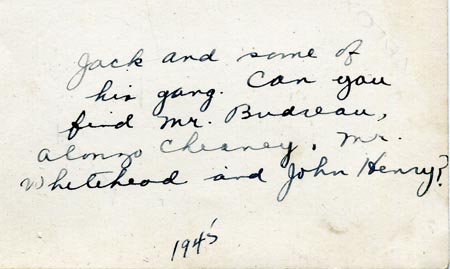 Jack and some of
his gang. Can you
find Mr. Budreau,
Alonzo Chesney, Mr.
Whitehead and John Henry?
1945